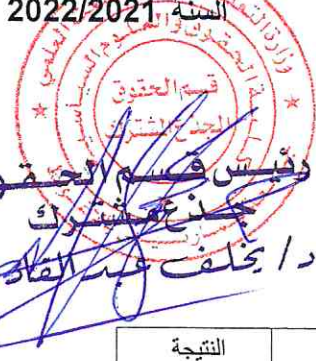 السنة 2022/2021
قسم الحقوق
الجذع المشترك
رئيس قسم
جذع مشترك
د/ يخلف عبد القاد
النتيجة